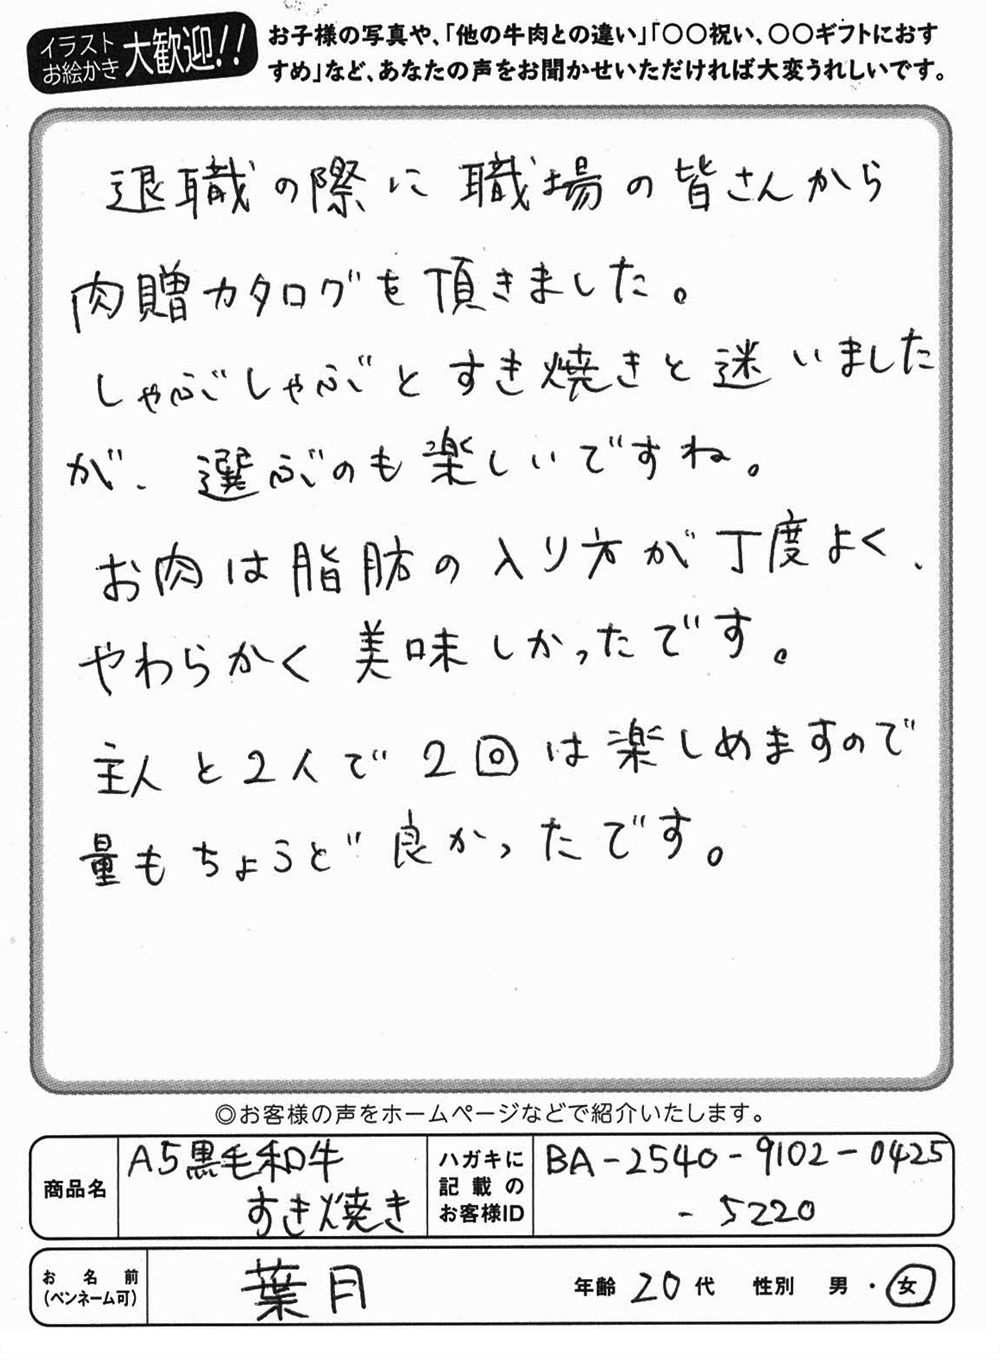 イラスト
お絵かき
大歓迎!!
お子様の写真や、「他の牛肉との違い」「〇〇祝い、〇〇ギフトにおす
すめ」など、あなたの声をお聞かせいただければ大変うれしいです。
退職の際に職場の皆さんから
肉贈カタログを頂きました。
しゃぶしゃぶとすき焼きと迷いました
が、選ぶのも楽しいですね。
お肉は脂肪の入り方が丁度よく、
やわらかく美味しかったです。
主人と2人で2回は楽しめますので
量もちょうど良かったです。
◎お客様の声をホームページなどで紹介いたします。
商品名
A5黒毛和牛
すき焼き
ハガキに
記載の
お客様ID
BA-2540-9102-0425
-5220
お名前
(ペンネーム可)
葉月
年齢 20代 性別 男・女